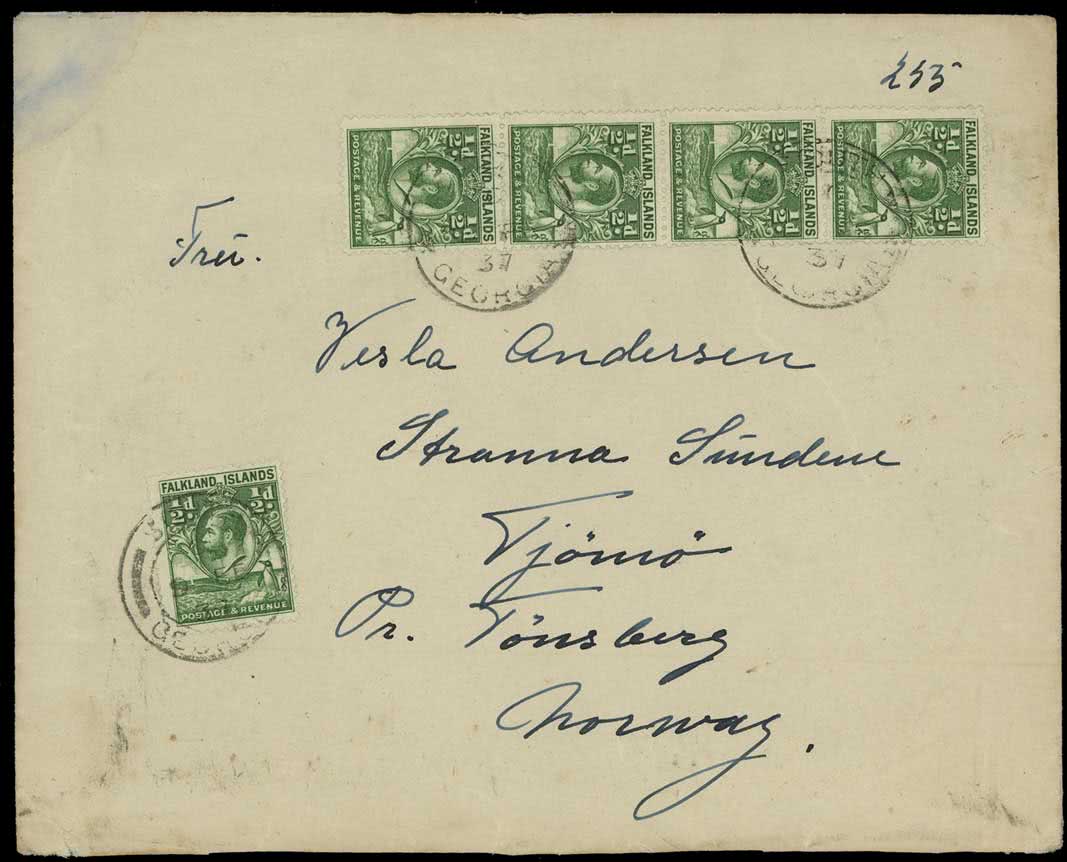 255
FALKLAND ISLANDS ½d. ½d. POSTAGE & REVENUE
FALKLAND ISLANDS ½d. ½d. POSTAGE & REVENUE
FALKLAND ISLANDS ½d. ½d. POSTAGE & REVENUE
FALKLAND ISLANDS ½d. ½d. POSTAGE & REVENUE
37
GEORGIA
37
GEORGIA
Frü.
Vesla Andersen
Stranna Sündene
Tjömö
Pr. Tönsberg
Norway.
FALKLAND ISLANDS
½d. ½d.
POSTAGE & REVENUE